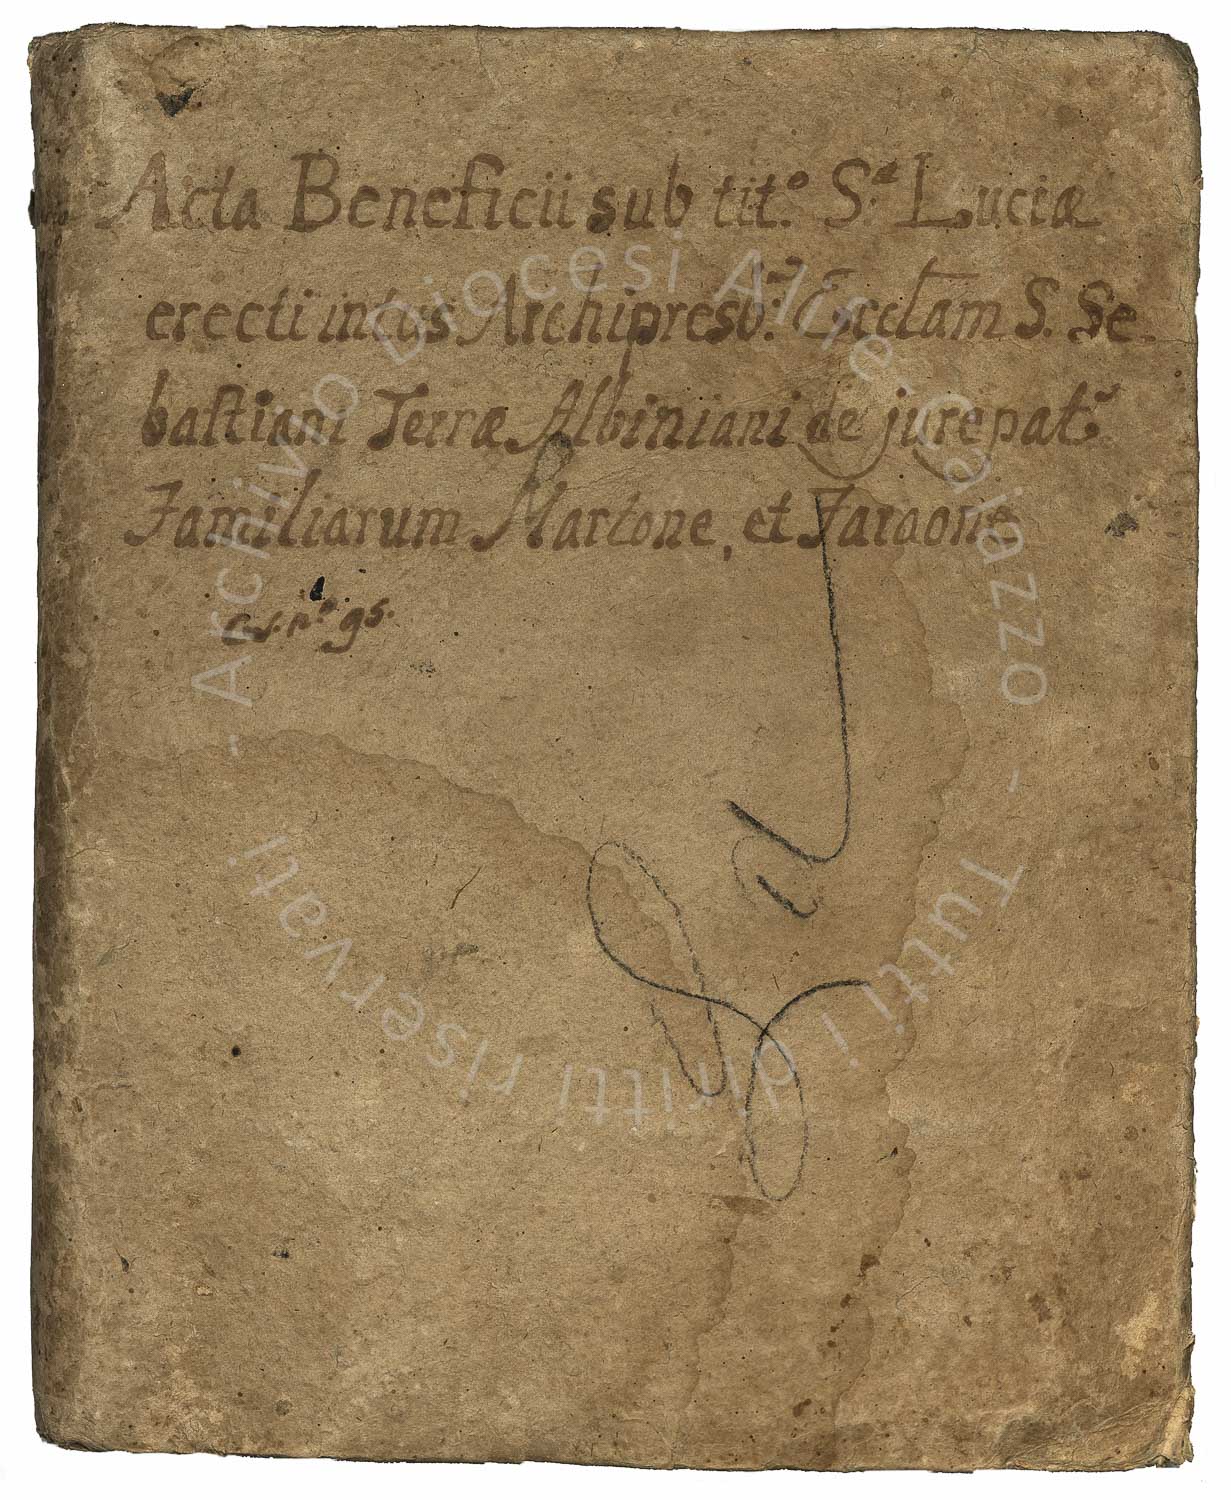 Acta Beneficii sub tit.º S.ª Luciæ
erecti intus Archipresb. Eccl̄am S. Se-
bastiani Terræ Albiniani de jurepat.
Familiarum Martone, et Faraone
n.º 95.
- Archivo Diocesi Alife-Caiazzo - Tutti i diritti riservati